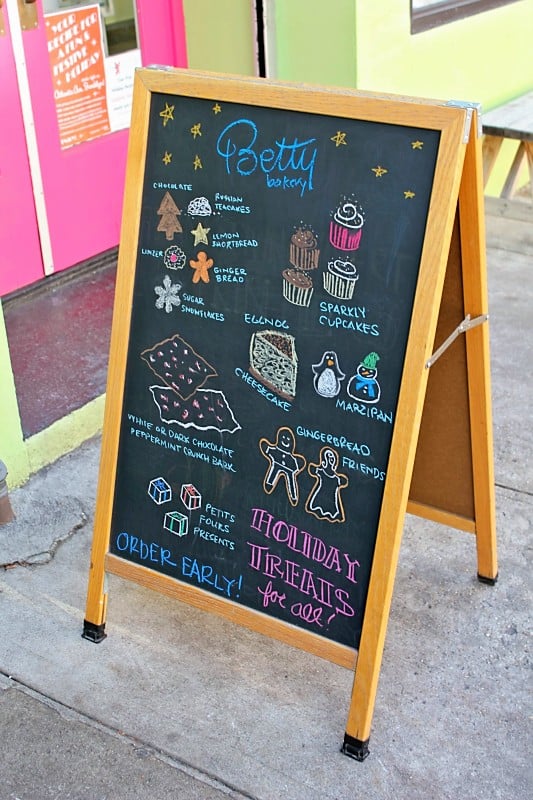 YOUR
RECIPE FOR
A FUN &
FESTIVE
HOLIDAY
Betty
bakery
CHOCOLATE
RUSSIAN
TEACAKES
LEMON
SHORTBREAD
LINZER
GINGER
BREAD
SUGAR
SNOWFLAKES
SPARKLY
CUPCAKES
EGGNOG
CHEESECAKE
MARZIPAN
WHITE OR DARK CHOCOLATE
PEPPERMINT CRUNCH BARK
GINGERBREAD
FRIENDS
PETITS
FOURS
PRESENTS
ORDER EARLY!
HOLIDAY
TREATS
for all!